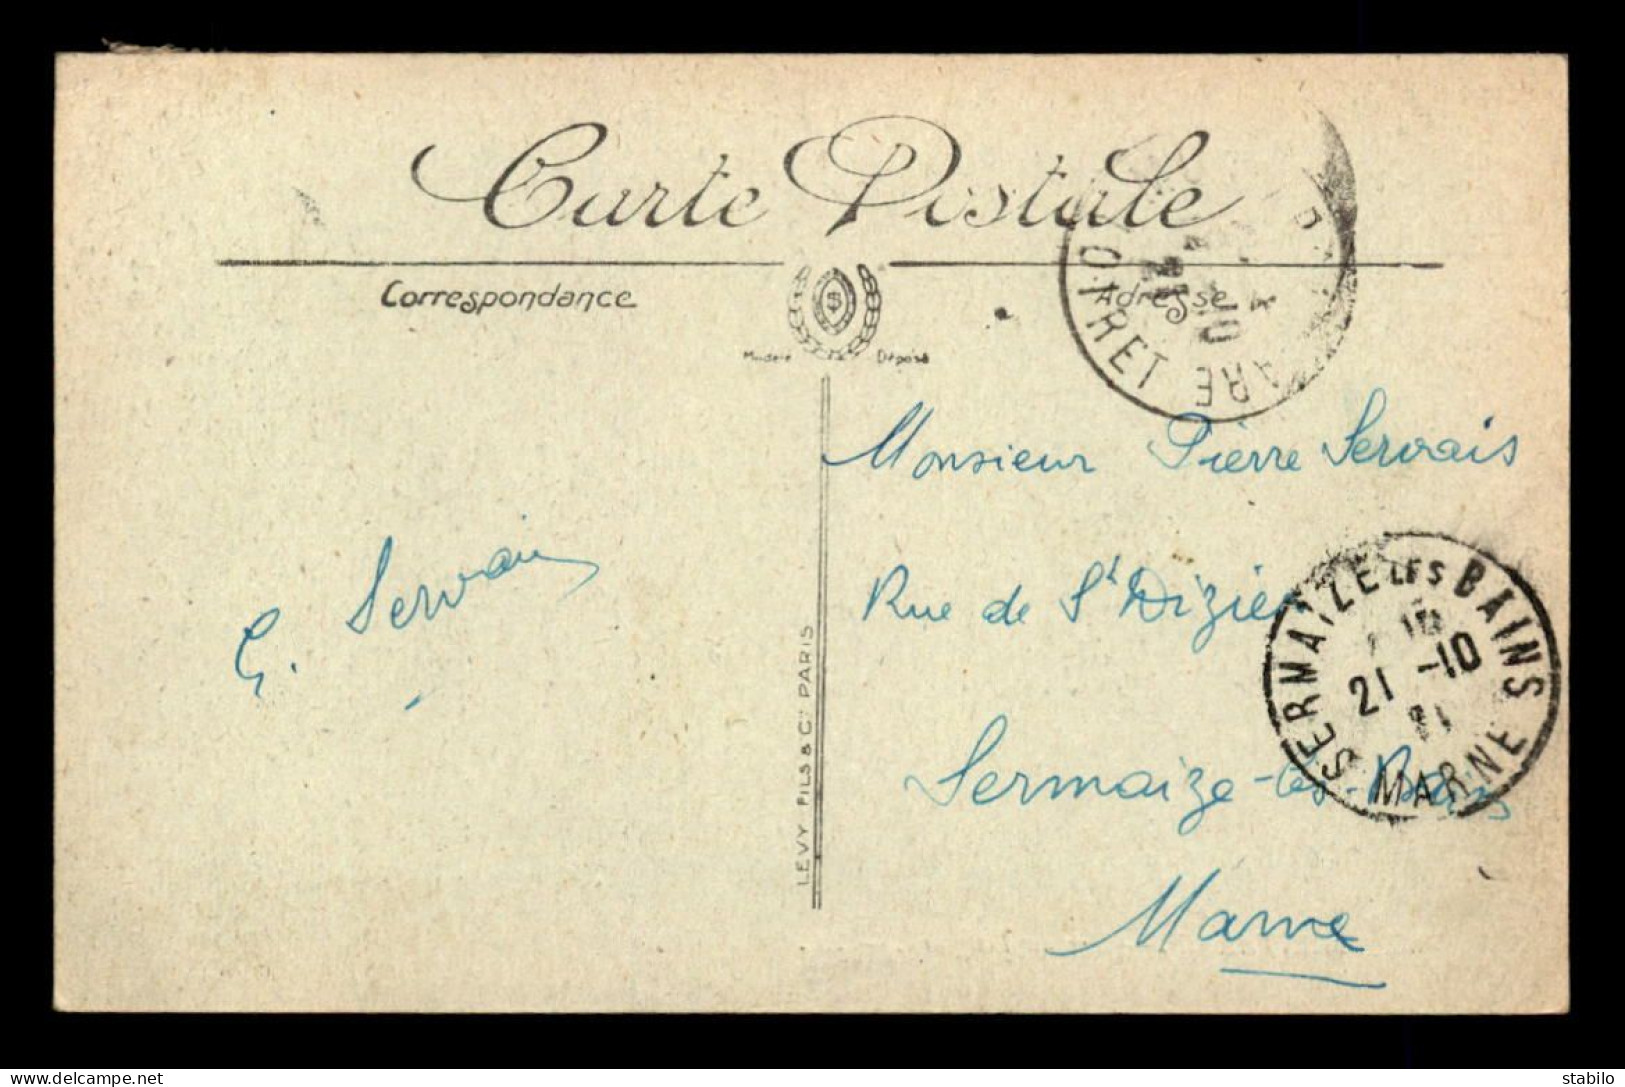 Carte Postale
Correspondance
Adresse
Modèle Déposé
S
Monsieur Pierre Servais
Rue de St Dizier
Sermaize-les-Bains
Marne
G. Servais
LEVY FILS & Cie PARIS
LOIRET
GARE
10
SERMAIZE LES BAINS
21 -10
MARNE
delcampe.net
stabilo